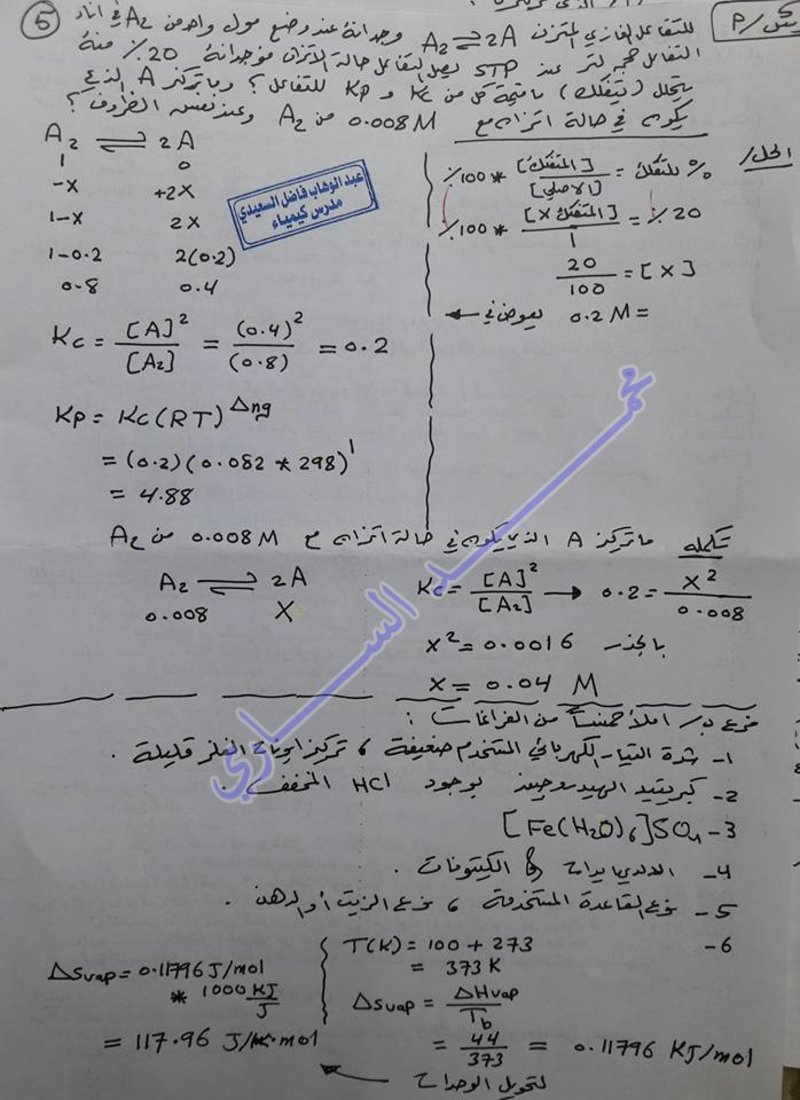 5
للتفاعل الغازي المتزن A₂ ⇌ 2A وجد انه عند وضع مول واحد من A₂ في اناء
التفاعل حجمه لتر عند STP يصل التفاعل حالة الاتزان فوجد انه 20٪ منه
يتحلل (يتفكك) ما قيمة كل من Kc و Kp للتفاعل؟ وما تركيز A الذي
يكون في حالة اتزان مع 0.008 M من A₂ وعند نفس الظروف؟
الحل/
٪ للتفكك = [المتفكك] / [الاصلي] * 100٪
20٪ = [المتفكك X] / 1 * 100٪
[X] = 20/100
= 0.2 M يعوض في
A₂ ⇌ 2A
1 0
-X +2X
1-X 2X
1-0.2 2(0.2)
0.8 0.4
عبد الوهاب فاضل السعيدي
مدرس كيمياء
Kc = [A]²/[A₂] = (0.4)²/(0.8) = 0.2
Kp = Kc (RT)^Δng
= (0.2)(0.082 * 298)¹
= 4.88
تكملة ما تركيز A الذي يكون في حالة اتزان مع 0.008 M من A₂
A₂ ⇌ 2A
0.008 X
Kc = [A]²/[A₂] → 0.2 = X²/0.008
X² = 0.0016 بالجذر
X = 0.04 M
فرع ب/ املأ خمساً من الفراغات:
1- شدة التيار الكهربائي المستخدم ضعيفة، تركيز ايونات الفلز قليلة.
2- كبريتيد الهيدروجين بوجود HCl المخفف.
3- [Fe(H₂O)₆]SO₄
4- الالديهايدات و الكيتونات.
5- نوع القاعدة المستخدمة، نوع الزيت أو الدهن.
6- T(K) = 100 + 273
= 373 K
ΔSvap = ΔHvap/Tb
= 44/373 = 0.11796 KJ/mol
لتحويل الوحدات
ΔSvap = 0.11796 J/mol
* 1000 KJ/J
= 117.96 J/K.mol
محمد الساري